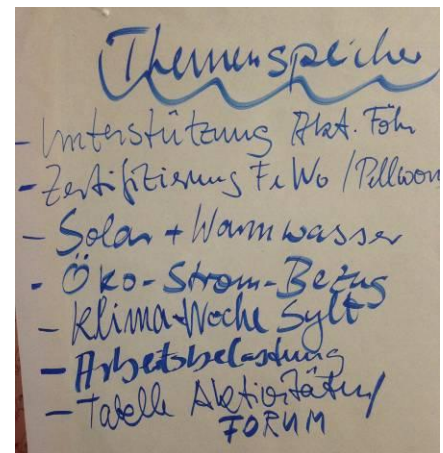 Themenspeicher
- Unterstützung Akt. Föhr
- Zertifizierung FeWo / Pellworm
- Solar + Warmwasser
- Öko-Strom-Bezug
- Klima-Woche Sylt
- Arbeitsbelastung
- Tabelle Aktivitäten /
FORUM